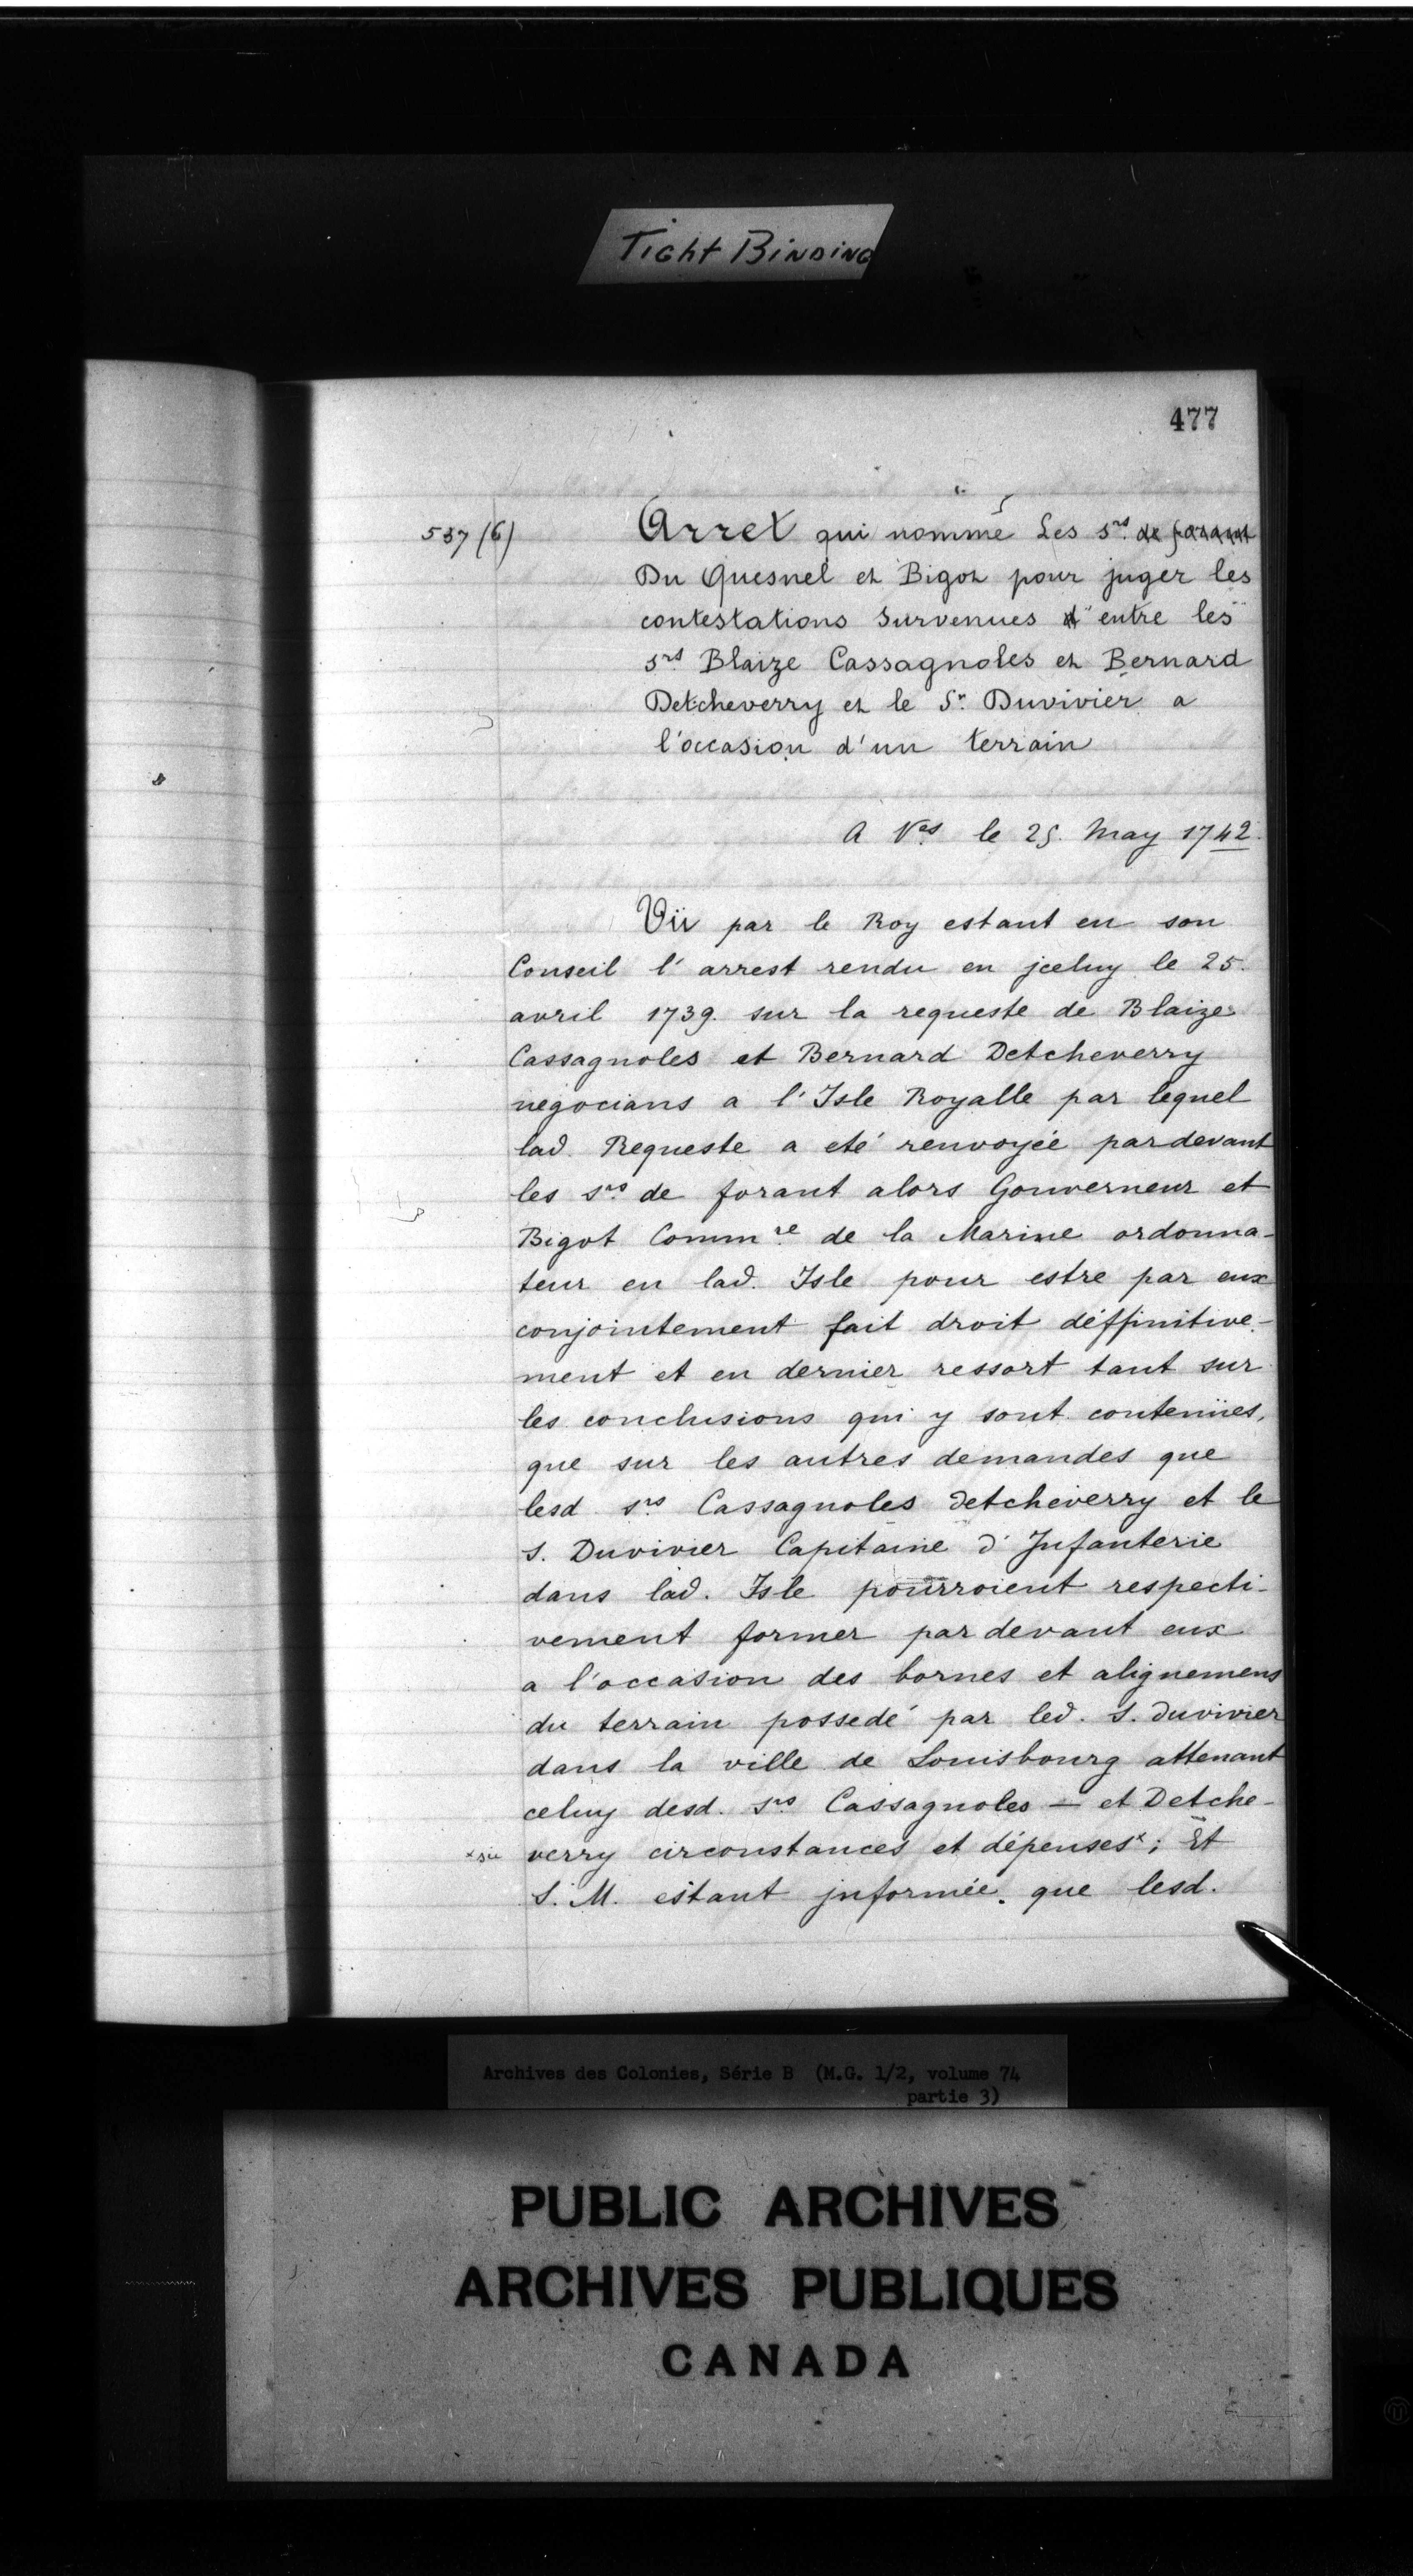 Tight Binding
477
537 (6)
Arret qui nomme Les Srs de forant
Du Quesnel et Bigot pour juger les
contestations Survenues d'entre les
srs Blaize Cassagnoles et Bernard
Detcheverry et le Sr. Duvivier a
l'occasion d'un terrain
A Ves le 25. May 1742.
Vü par le Roy estant en son
Conseil l'arrest rendu en jceluy le 25.
avril 1739. sur la requeste de Blaize
Cassagnoles et Bernard Detcheverry
negocians a l'Isle Royalle par lequel
lad. Requeste a eté renvoyée pardevant
les srs de forant alors Gouverneur et
Bigot Commre de la Marine ordonna-
teur en lad. Isle pour estre par eux
conjointement fait droit déffinitive-
ment et en dernier ressort tant sur
les conclusions qui y sont contenües,
que sur les autres demandes que
lesd srs Cassagnoles Detcheverry et le
S. Duvivier Capitaine d'Infanterie
dans lad. Isle pourroient respecti-
vement former pardevant eux
a l'occasion des bornes et alignemens
du terrain possedé par led. S. Duvivier
dans la ville de Louisbourg attenant
celuy desd. srs Cassagnoles — et Detche-
x sic verry circonstances et dépenses x; Et
S. M. estant jnformée. que lesd.
Archives des Colonies, Série B (M.G. 1/2, volume 74
partie 3)
PUBLIC ARCHIVES
ARCHIVES PUBLIQUES
CANADA